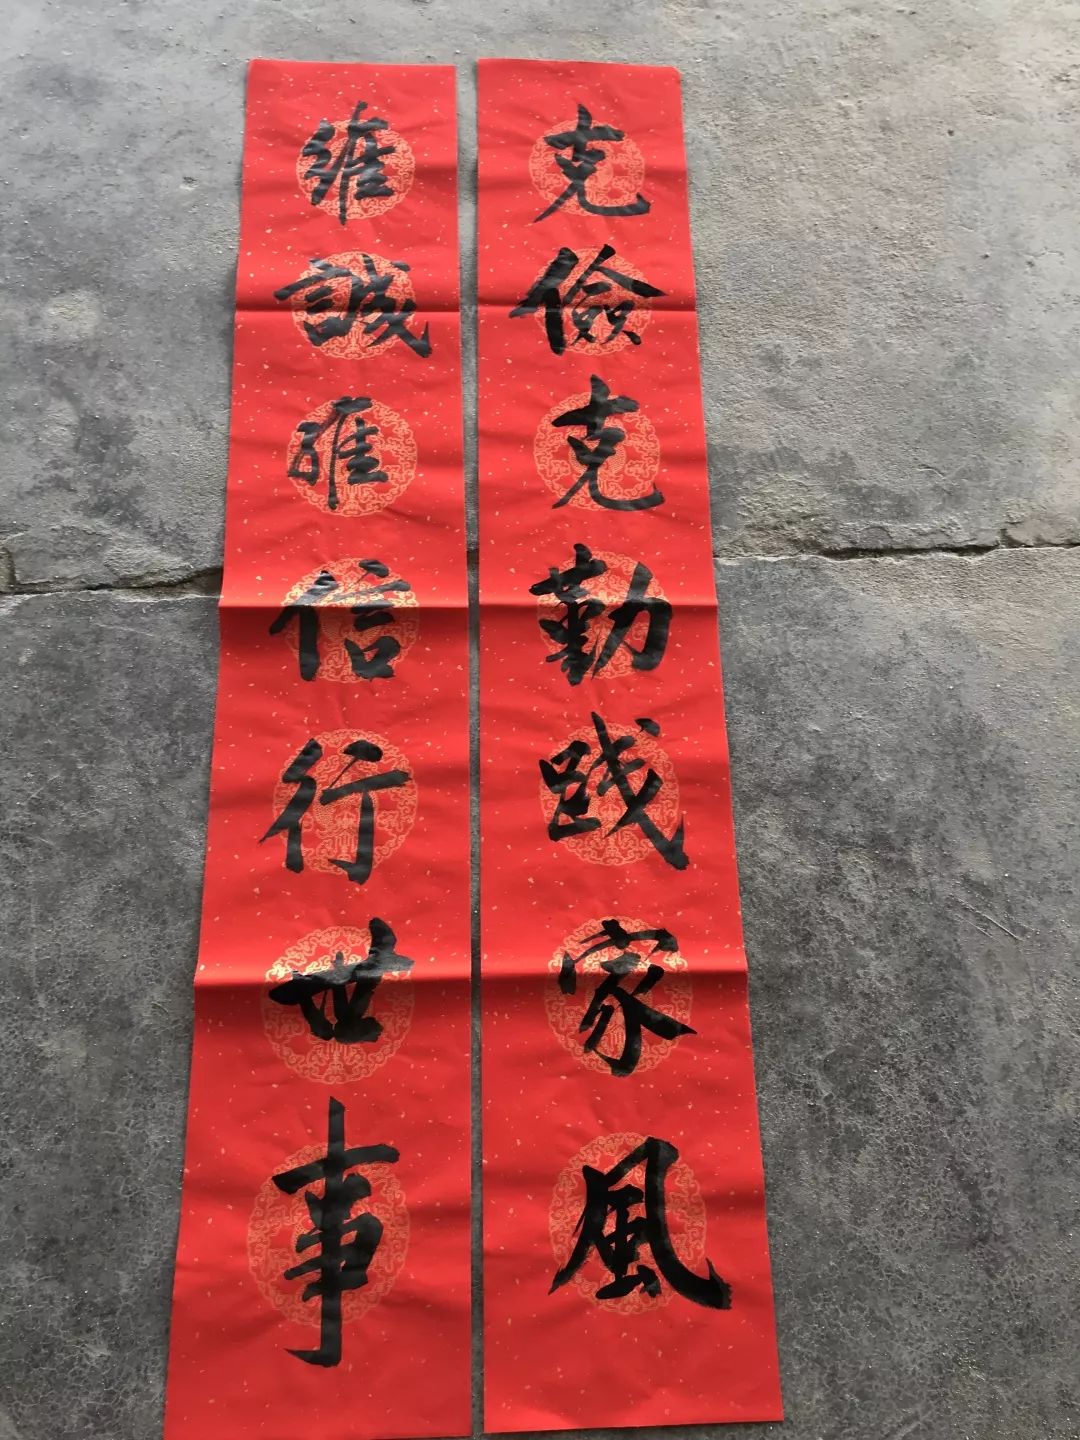 克儉克勤践家風
維誠維信行世事